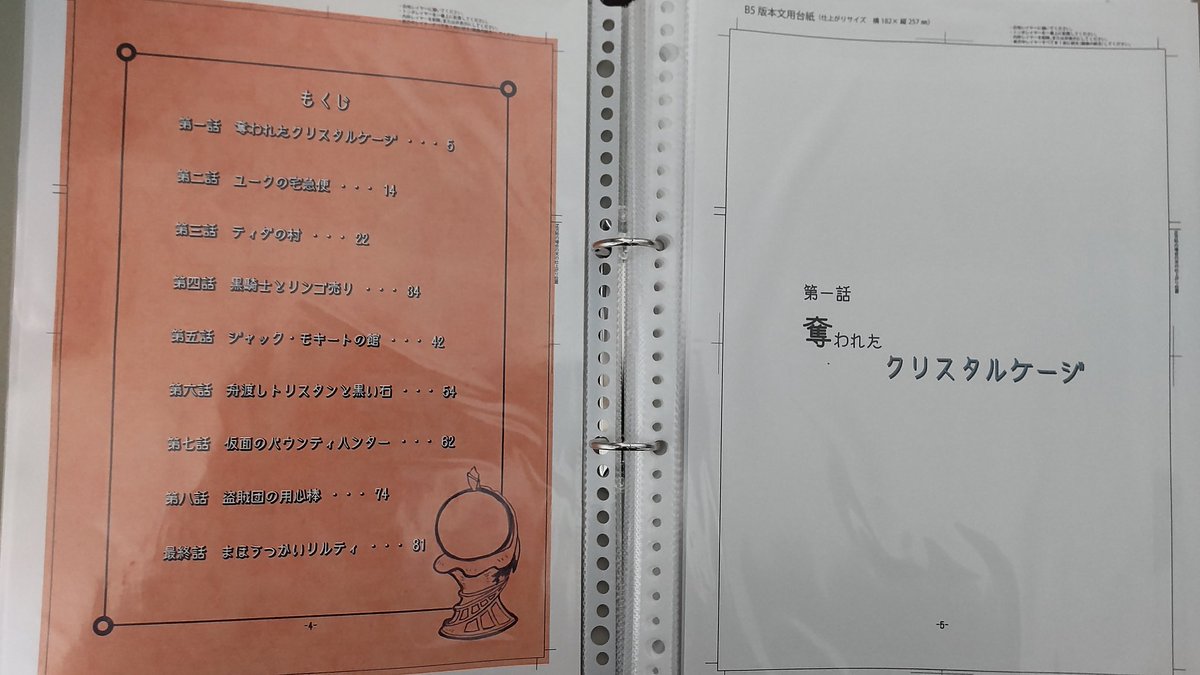 もくじ
第一話 奪われたクリスタルケージ ・・・ 5
第二話 ユークの宅急便 ・・・ 14
第三話 ティダの村 ・・・ 22
第四話 黒騎士とリンゴ売り ・・・ 34
第五話 ジャック・モキートの館 ・・・ 42
第六話 舟渡しトリスタンと黒い石 ・・・ 54
第七話 仮面のバウンティハンター ・・・ 62
第八話 盗賊団の用心棒 ・・・ 74
最終話 まほうつかいリルティ ・・・ 81
-4-
B5版本文用台紙（仕上がりサイズ 横182×縦257㎜）
第一話
奪われた
クリスタルケージ
-5-